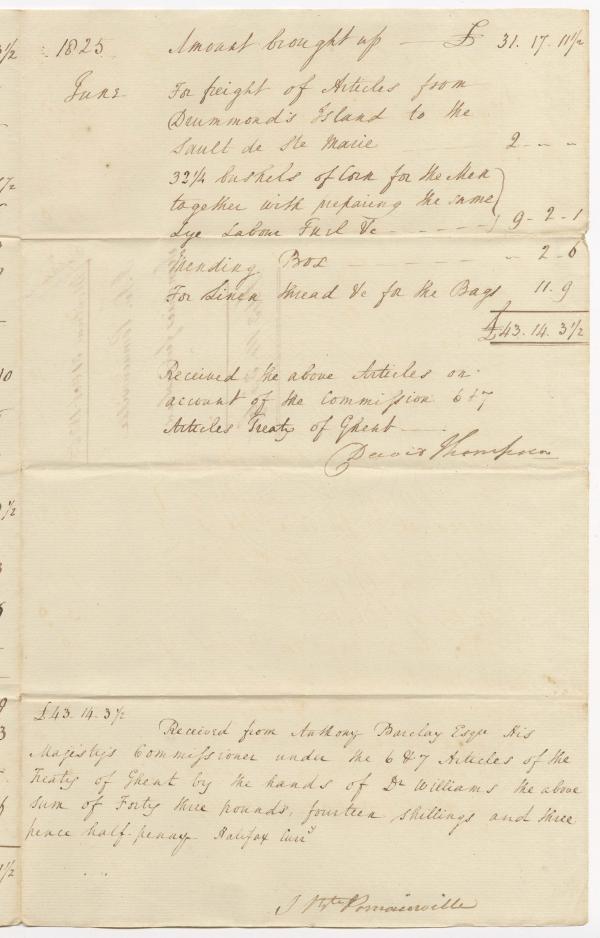 1825 Amount brought up — £ 31. 17. 11 1/2
June For freight of Articles from
Drummond's Island to the
Sault de Ste Marie 2 - - -
32 1/4 bushels of Corn for the Men
together with repairing the same
Lye Labour Fuel &c - - - - - 9 - 2 - 1
Mending Box - - - - " 2 - 6
For Linen thread &c for the Bags 11. 9
£43. 14. 3 1/2
Received the above Articles on
account of the Commission 6 & 7
Articles Treaty of Ghent
David Thompson
£43. 14. 3 1/2
Received from Anthony Barclay Esqr His
Majesty's Commissioner under the 6 & 7 Articles of the
Treaty of Ghent by the hands of Dr Williams the above
sum of Forty three pounds, fourteen shillings and three
pence half-penny Halifax Curry
J Bte Pomainville